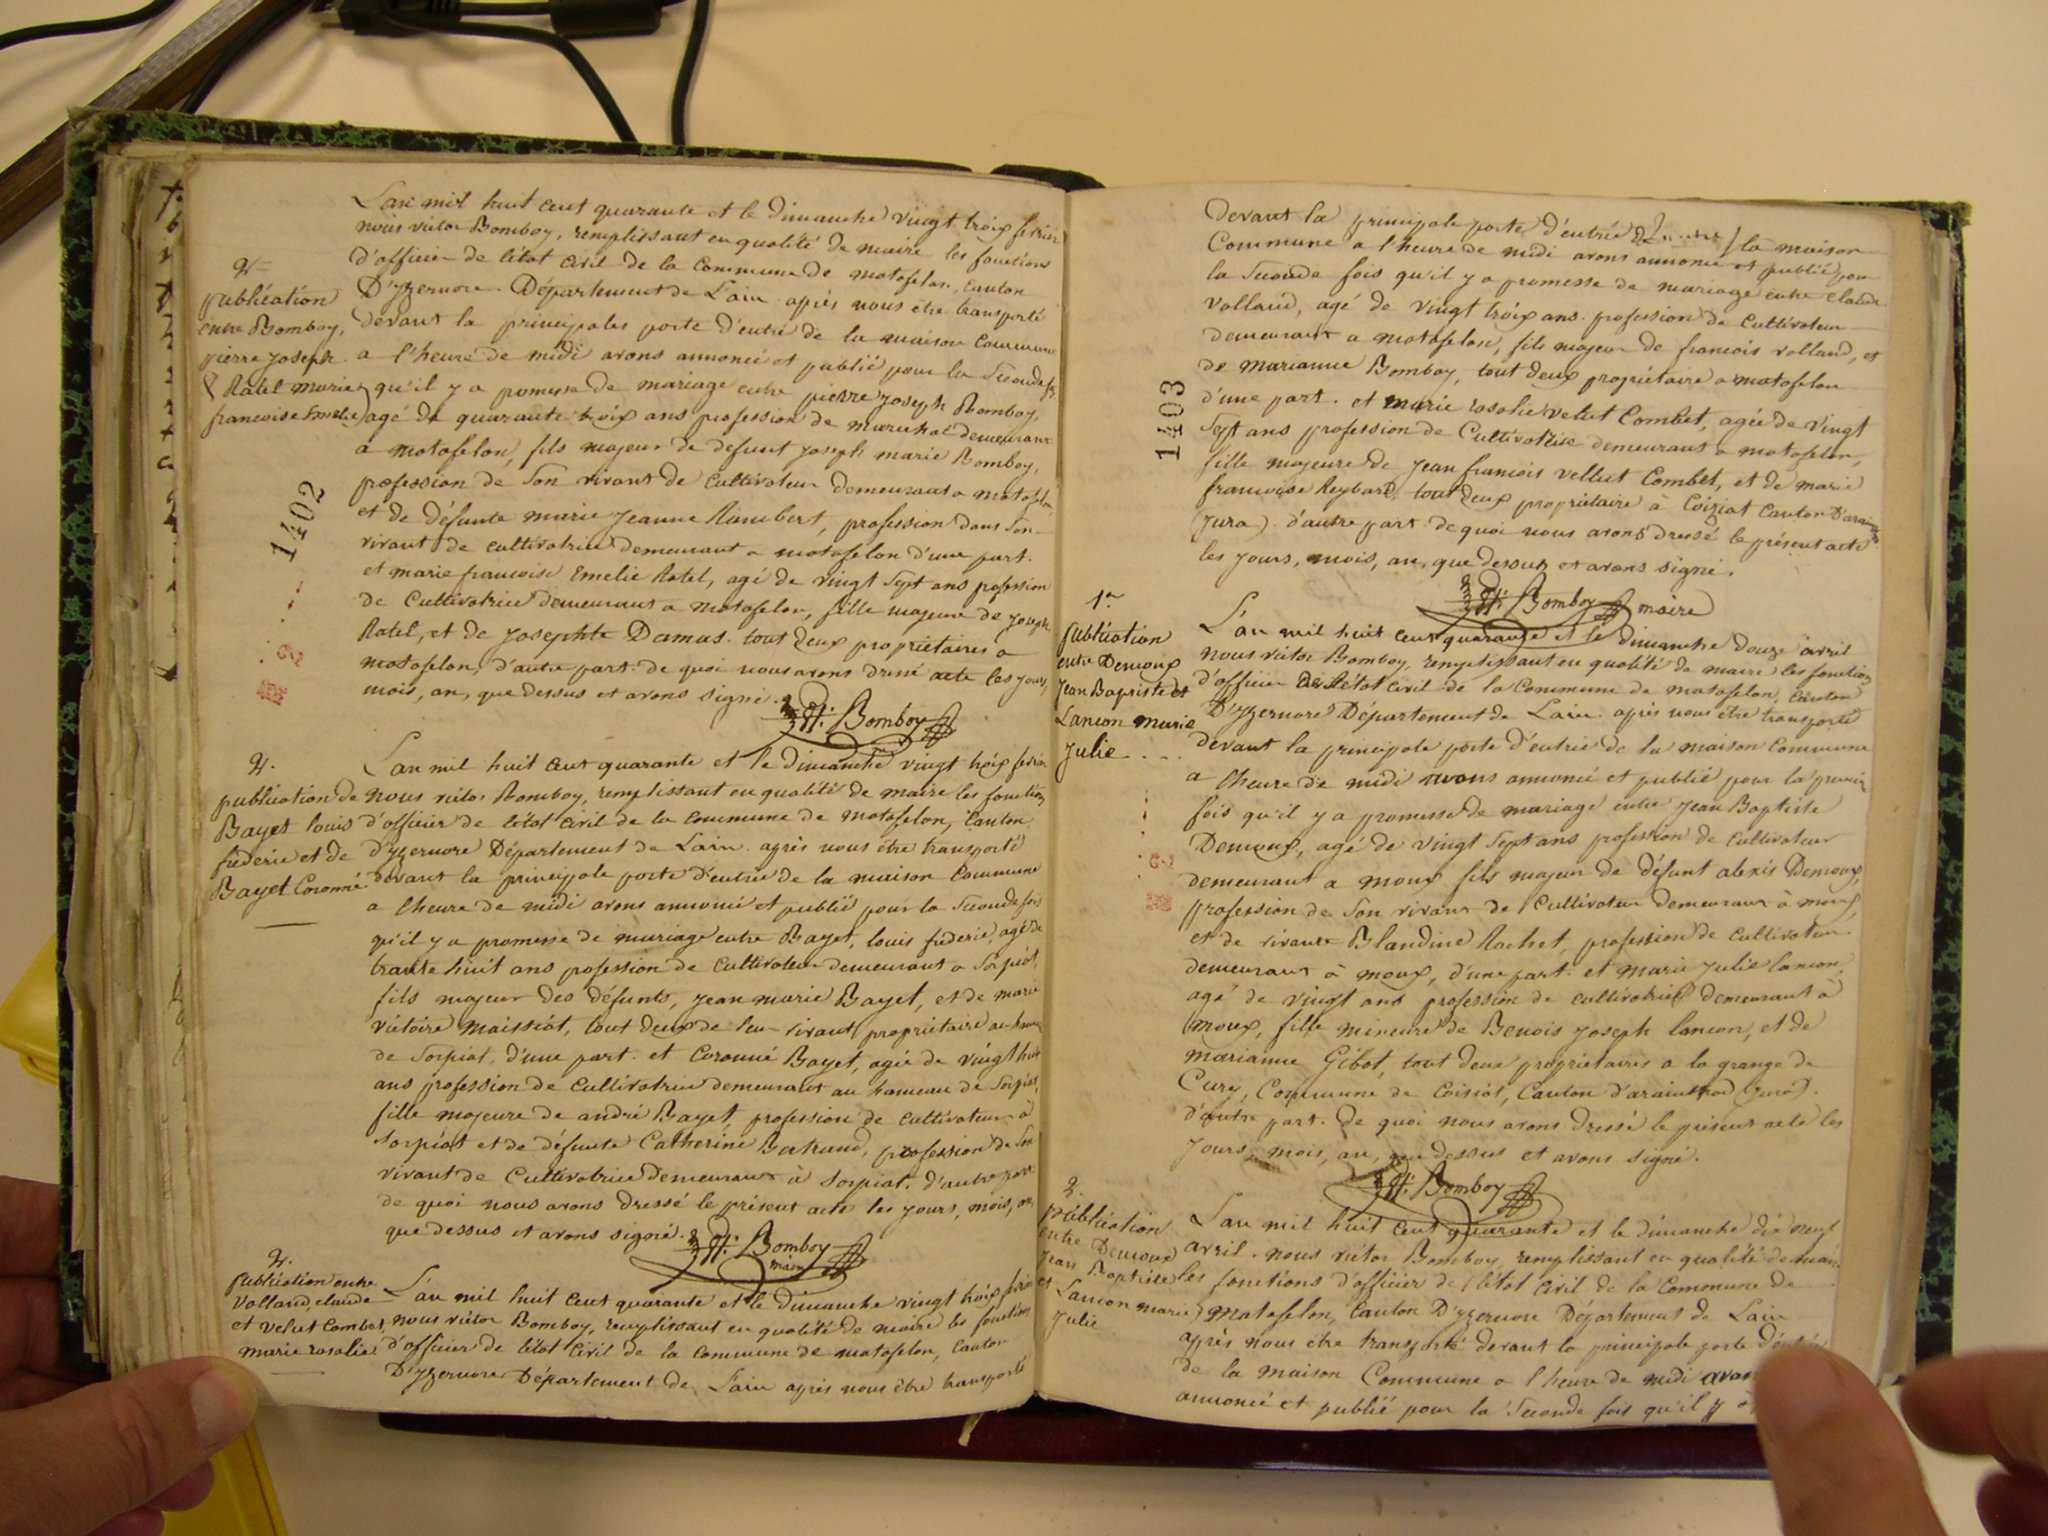 L'an mil huit cent quarante et le dimanche vingt troix fevrier
nous victor Bomboy, remplissant en qualité de maire les fonctions
d'officier de l'état civil de la Commune de matafelon, canton
D'yzernore Département de Lain après nous être transporté
devant la principales porte d'entré de la maison Commune
a l'heure de midi avons annoncé et publié pour la Seconde fs
qu'il y a pomesse de mariage entre pierre joseph Bomboy,
agé de quarante troix ans profession de marechal demeurant
a matafelon, fils majeur de defunt joseph marie Bomboy,
profession de Son vivant de cultivateur demeurant a matafelon
et de défunte marie jeanne Rambert, profession dans Son
vivant de cultivatrice demeurant a matafelon d'une part.
et marie francoise Emelie Ratel, agé de vingt Sept ans profession
de Cultivatrice demeurant a matafelon, fille majeure de joseph
Ratel, et de josephte Damas tout deux propriétaires a
matafelon, d'autre part. de quoi nous avons dressé acte les jours,
mois, an, que dessus et avons signé.
Bomboy
2e
publication
entre Bomboy,
pierre joseph
& Ratel marie
francoise Emelie
1402
L'an mil huit cent quarante et le dimanche vingt troix fevrier
nous victor Bomboy, remplissant en qualité de maire les fonctions
d'officier de l'état civil de la commune de matafelon, Canton
d'yzernore Département de Lain après nous être transporté
devant la principale porte d'entrée de la maison Commune
a l'heure de midi avons annoncé et publié pour la Seconde fois
qu'il y a promesse de mariage entre Bayet, louis frederic, agé de
trante huit ans profession de Cultivateur demeurant a Sorpiat,
fils majeur des défunts, jean marie Bayet, et de marie
victoire maissiat, tout deux de leur vivant propriétaire au hameau
de Sorpiat, d'une part. et Coronné Bayet, agée de vingt huit
ans profession de Cultivatrice demeurant au hameau de Sorpiat,
fille majeure de andré Bayet, profession de cultivateur à
Sorpiat et de défunte Catherine Bertrand, profession de Son
vivant de Cultivatrice demeurant à Sorpiat, d'autre part
de quoi nous avons dressé le présent acte les jours, mois, an,
que dessus et avons signé.
Bomboy
maire
2e
publication de
Bayet louis
frederic et de
Bayet Coronné
L'an mil huit cent quarante et le dimanche vingt troix fevrier
nous victor Bomboy, remplissant en qualité de maire les fonctions
d'officier de l'état civil de la Commune de matafelon, Canton
D'yzernore Département de Lain après nous être transporté
2e
publication entre
Volland claude
et velut Combet
marie rosalie
devant la principale porte d'entrée de la maison
Commune a l'heure de midi avons annoncé et publié pour
la Seconde fois qu'il y a promesse de mariage entre claude
Volland, agé de vingt troix ans profession de Cultivateur
demeurant a matafelon, fils majeur de francois volland, et
de marianne Bomboy, tout deux propriétaire a matafelon
d'une part. et marie rosalie velut Combet, agée de vingt
Sept ans profession de Cultivatrice demeurant a matafelon,
fille majeure de jean francois vellut Combet, et de marie
francoise Reybard, tout deux propriétaire à Coiziat Canton D'arainthod
(jura). d'autre part. de quoi nous avons dressé le présent acte
les jours, mois, an, que dessus et avons signé.
Bomboy maire
1403
L'an mil huit cent quarante et le dimanche douze avril
nous victor Bomboy, remplissant en qualité de maire les fonctions
d'officier de l'état civil de la Commune de matafelon, Canton
D'yzernore Département de Lain après nous être transporté
devant la principale porte d'entrée de la maison Commune
a l'heure de midi avons annoncé et publié pour la premier
fois qu'il y a promesse de mariage entre jean Baptiste
Demoux, agé de vingt Sept ans profession de Cultivateur
demeurant a moux fils majeur de défunt alexis Demoux,
profession de Son vivant de Cultivateur demeurant à moux,
et de vivante Blandine Rachet, profession de cultivateur
demeurant à moux, d'une part. et marie Julie lancon,
agé de vingt ans profession de cultivatrice demeurant à
moux, fille mineure de Benois joseph lancon, et de
marianne Gibot, tout deux propriétaires a la grange de
Cury, Commune de Coisiat, Canton d'arainthod (jura).
d'autre part. de quoi nous avons dressé le présent acte les
jours, mois, an, que dessus et avons signé.
Bomboy
1er
publication
entre Demoux
jean Baptiste et
Lancon marie
julie
L'an mil huit cent quarante et le dimanche dix neuf
avril. nous victor Bomboy, remplissant en qualité de maire
les fonctions d'officier de l'état civil de la Commune de
matafelon, Canton D'yzernore Département de Lain
après nous être transporté devant la principale porte d'entrée
de la maison Commune a l'heure de midi avons
annoncé et publié pour la Seconde fois qu'il y a
2.
publication
entre Demoux
jean Baptiste
et Lancon marie
julie